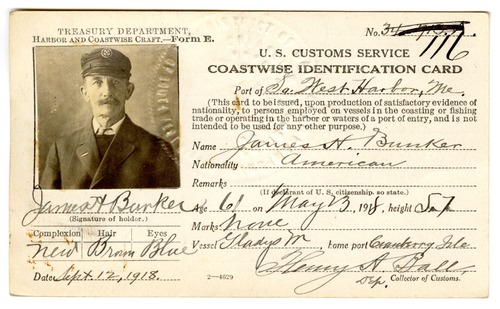 TREASURY DEPARTMENT,
HARBOR AND COASTWISE CRAFT.—FORM E.
No.
U. S. CUSTOMS SERVICE
COASTWISE IDENTIFICATION CARD
Port of So. West Harbor, Me.
(This card to be issued, upon production of satisfactory evidence of
nationality, to persons employed on vessels in the coasting or fishing
trade or operating in the harbor or waters of a port of entry, and is not
intended to be used for any other purpose.)
Name James H. Bunker
Nationality American
Remarks
(If declarant of U. S. citizenship, so state.)
James H Bunker
(Signature of holder.)
Age 61 on May 13, 1918, height 5-7
Marks None
Complexion Hair Eyes
Med Brown Blue
Vessel Gladys M, home port Cranberry Isle
Date Sept. 12, 1918.
2—4629
Henry A Ball
Dep. Collector of Customs.